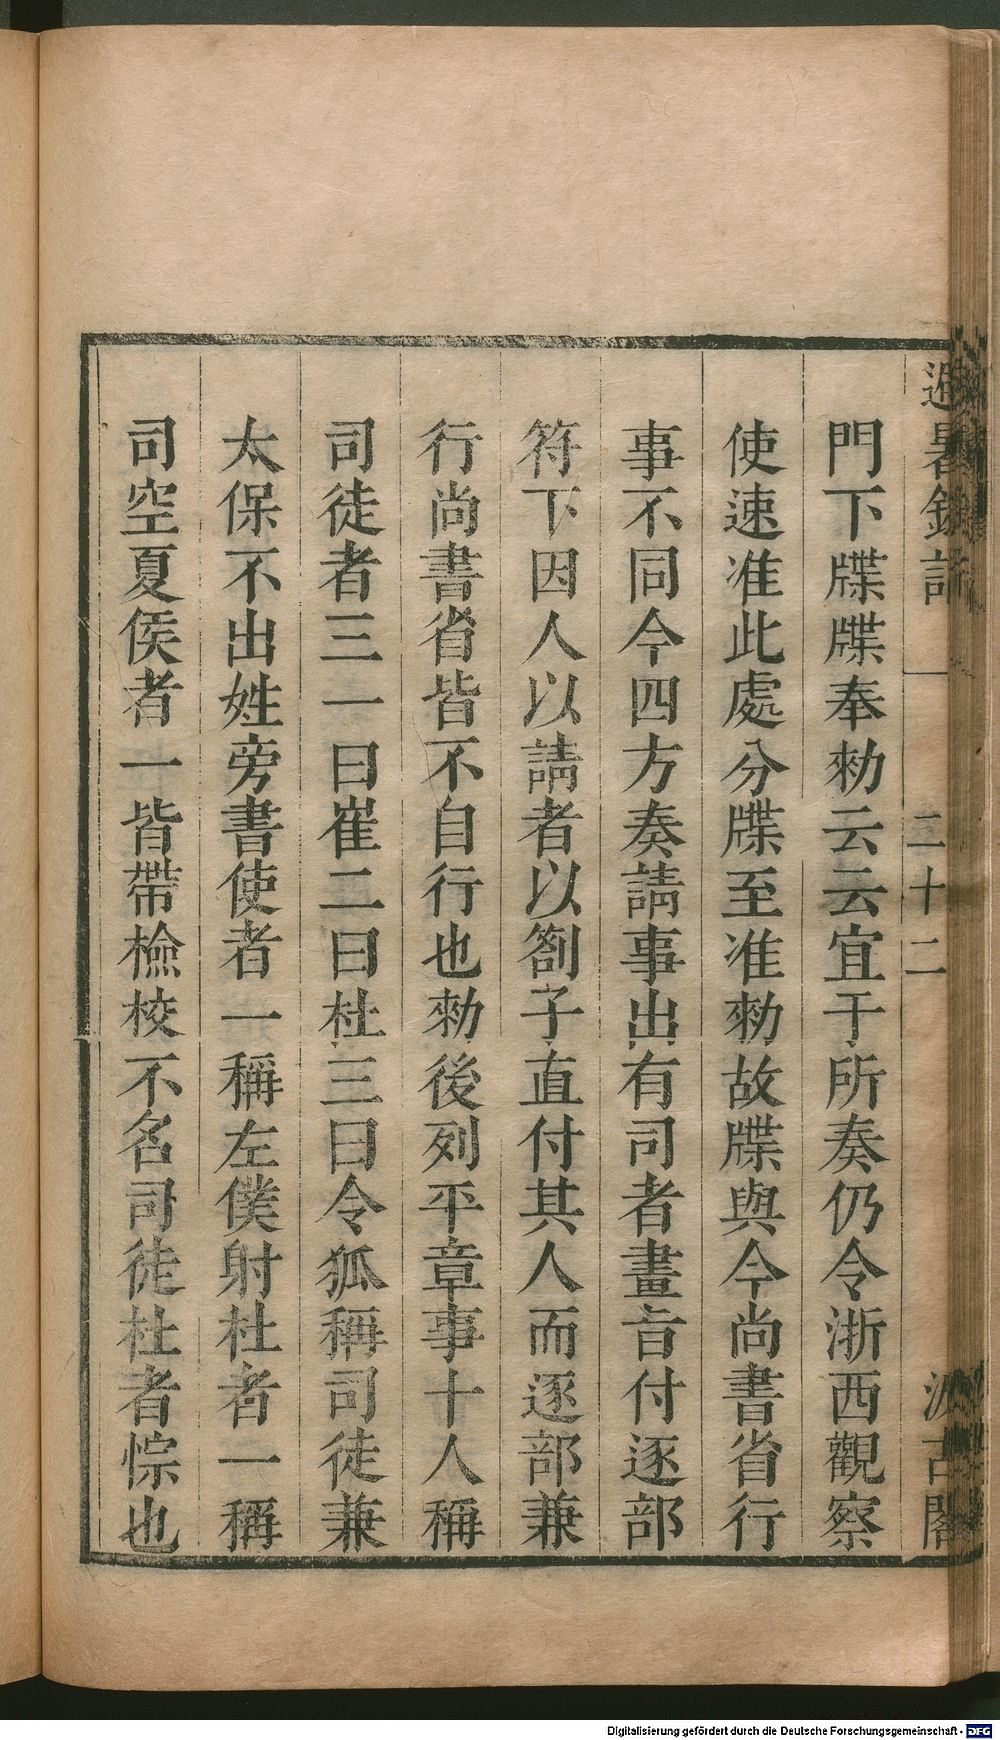 避暑録話
二十二
汲古閣
門下牒牒奉勑云云宜于所奏仍令浙西觀察
使速准此處分牒至准勑故牒與今尚書省行
事不同今四方奏請事出有司者畫旨付逐部
符下因人以請者以劄子直付其人而逐部兼
行尚書省皆不自行也勑後列平章事十人稱
司徒者三一曰崔二曰杜三曰令狐稱司徒兼
太保不出姓旁書使者一稱左僕射杜者一稱
司空夏侯者一皆帶檢校不名司徒杜者悰也
Digitalisierung gefördert durch die Deutsche Forschungsgemeinschaft - DFG